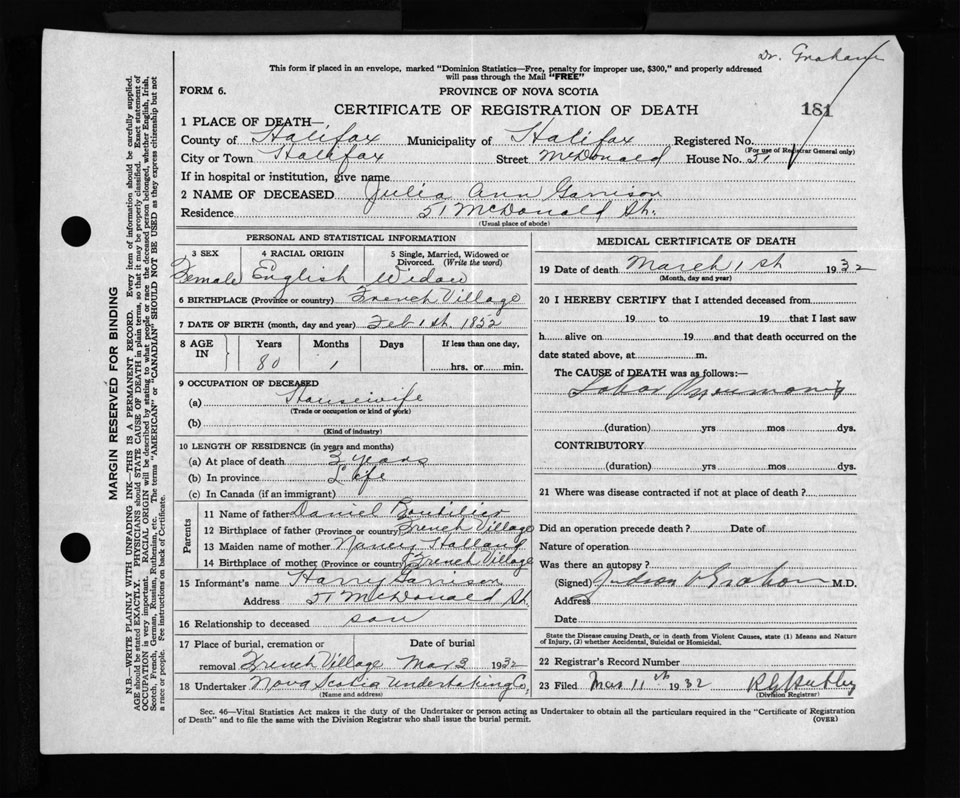 Dr. Graham
This form if placed in an envelope, marked "Dominion Statistics—Free, penalty for improper use, $300," and properly addressed
will pass through the Mail "FREE"
FORM 6.
PROVINCE OF NOVA SCOTIA
CERTIFICATE OF REGISTRATION OF DEATH
181
1 PLACE OF DEATH—
County of Halifax Municipality of Halifax Registered No.
(For use of Registrar General only)
City or Town Halifax Street McDonald House No. 51
If in hospital or institution, give name
2 NAME OF DECEASED Julia Ann Garrison
Residence 51 McDonald St.
(Usual place of abode)
PERSONAL AND STATISTICAL INFORMATION
3 SEX 4 RACIAL ORIGIN 5 Single, Married, Widowed or
Divorced. (Write the word)
Female English Widow
6 BIRTHPLACE (Province or country) French Village
7 DATE OF BIRTH (month, day and year) Feb 1st. 1852
8 AGE IN Years Months Days If less than one day,
80 1 hrs. or min.
9 OCCUPATION OF DECEASED
(a) Housewife
(Trade or occupation or kind of work)
(b)
(Kind of industry)
10 LENGTH OF RESIDENCE (in years and months)
(a) At place of death 3 years
(b) In province Life
(c) In Canada (if an immigrant)
Parents
11 Name of father Daniel Boutilier
12 Birthplace of father (Province or country) French Village
13 Maiden name of mother Nancy Holland
14 Birthplace of mother (Province or country) French Village
15 Informant's name Harry Garrison
Address 51 McDonald St.
16 Relationship to deceased son
17 Place of burial, cremation or Date of burial
removal French Village Mar 3 1932
18 Undertaker Nova Scotia Undertaking Co,
(Name and address)
MEDICAL CERTIFICATE OF DEATH
19 Date of death March 1st 1932
(Month, day and year)
20 I HEREBY CERTIFY that I attended deceased from
19 to 19 that I last saw
h alive on 19 and that death occurred on the
date stated above, at m.
The CAUSE of DEATH was as follows:—
Lobar Pneumonia
(duration) yrs mos dys.
CONTRIBUTORY
(duration) yrs mos dys.
21 Where was disease contracted if not at place of death?
Did an operation precede death? Date of
Nature of operation
Was there an autopsy?
(Signed) Judson V Graham M.D.
Address
Date
State the Disease causing Death, or in death from Violent Causes, state (1) Means and Nature
of Injury, (2) whether Accidental, Suicidal or Homicidal.
22 Registrar's Record Number
23 Filed Mar 11th 1932
(Division Registrar)
Sec. 46—Vital Statistics Act makes it the duty of the Undertaker or person acting as Undertaker to obtain all the particulars required in the "Certificate of Registration
of Death" and to file the same with the Division Registrar who shall issue the burial permit.
(OVER)
MARGIN RESERVED FOR BINDING
N.B.—WRITE PLAINLY WITH UNFADING INK—THIS IS A PERMANENT RECORD. Every item of information should be carefully supplied.
AGE should be stated EXACTLY. PHYSICIANS should STATE CAUSE OF DEATH in plain terms, so that it may be properly classified. Exact statement of
OCCUPATION is very important. RACIAL ORIGIN will be described by stating to what people or race the deceased person belonged, whether English, Irish,
Scotch, French, German, Russian, Ruthenian, etc. The terms "AMERICAN" or "CANADIAN" SHOULD NOT BE USED as they express citizenship but not
a race or people. Fee instructions on back of Certificate.